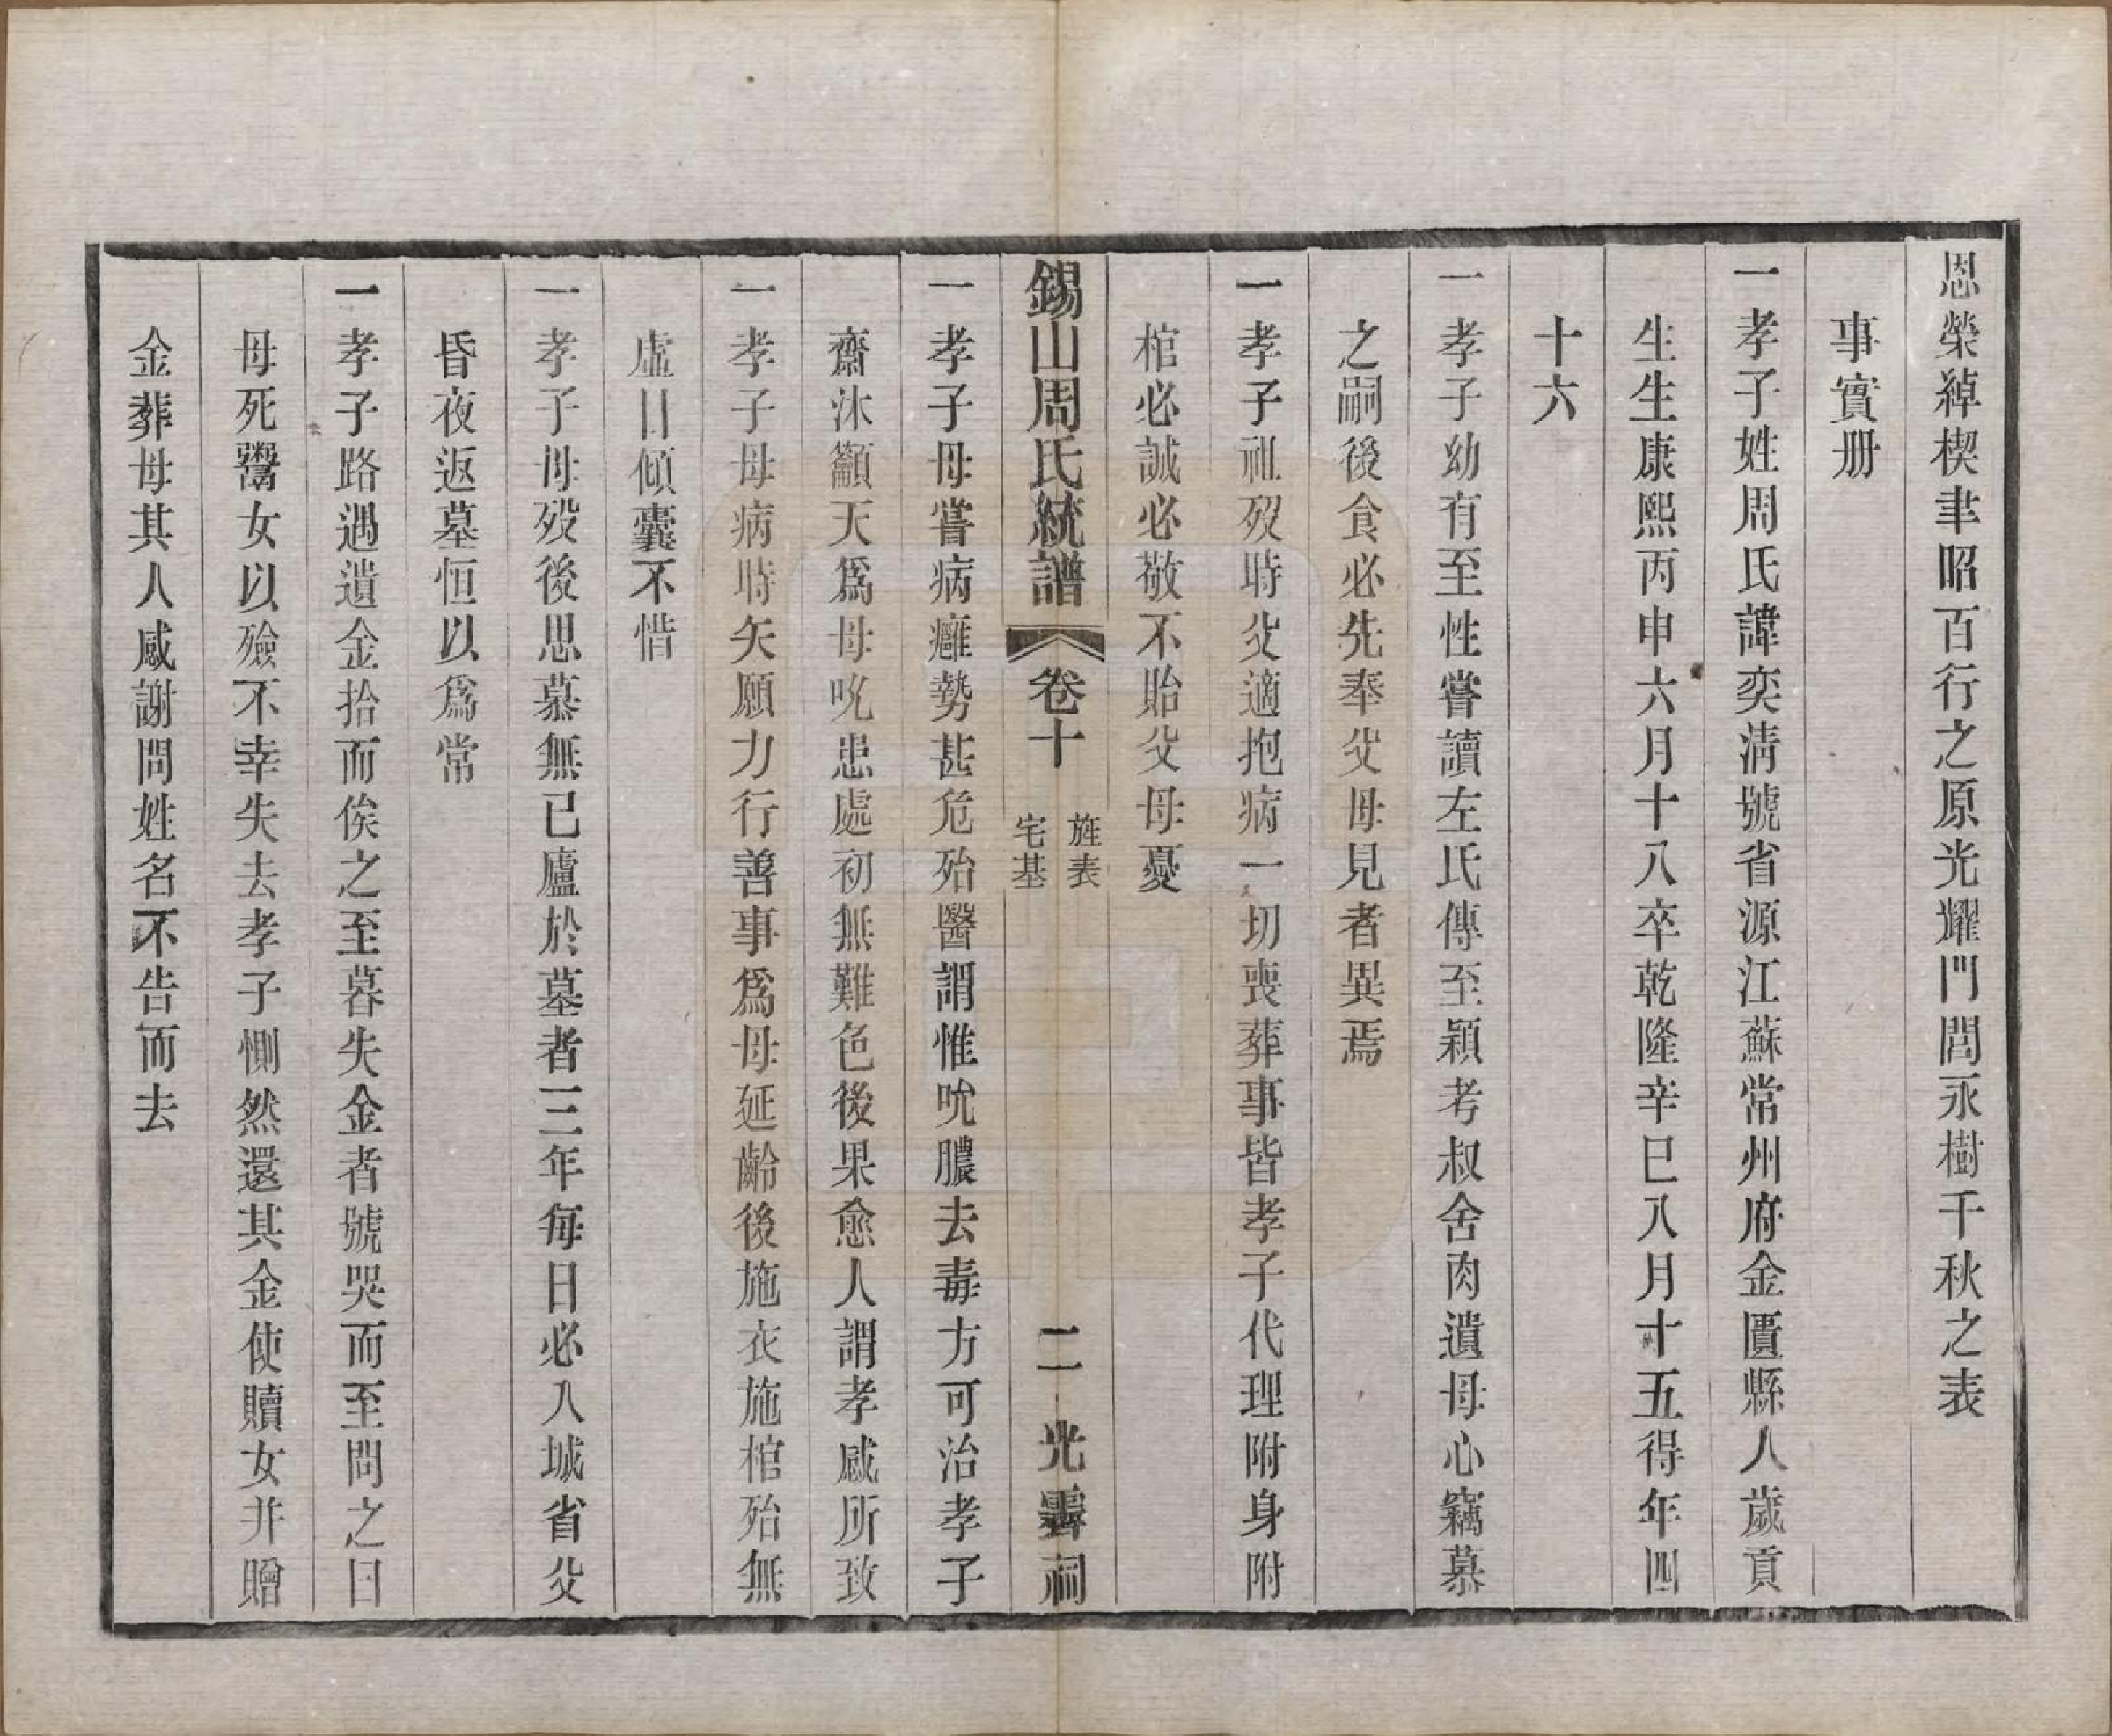 恩榮綽楔聿昭百行之原光耀門閭永樹千秋之表
事實册
一孝子姓周氏諱奕淸號省源江蘇常州府金匱縣人歲貢
生生康熙丙申六月十八卒乾隆辛巳八月十五得年四
十六
一孝子幼有至性嘗讀左氏傳至穎考叔舍肉遺母心竊慕
之嗣後食必先奉父母見者異焉
一孝子祖歿時父適抱病一切喪葬事皆孝子代理附身附
棺必誠必敬不貽父母憂
錫山周氏統譜 卷十 旌表 宅基 二 光霽祠
一孝子母嘗病癰勢甚危殆醫謂惟吮膿去毒方可治孝子
齋沐籲天爲母吮患處初無難色後果愈人謂孝感所致
一孝子母病時矢願力行善事爲母延齡後施衣施棺殆無
虛日傾囊不惜
一孝子母歿後思慕無已廬於墓者三年每日必入城省父
昏夜返墓恒以爲常
一孝子路遇遺金拾而俟之至暮失金者號哭而至問之曰
母死鬻女以殮不幸失去孝子惻然還其金使贖女并贈
金葬母其人感謝問姓名不告而去